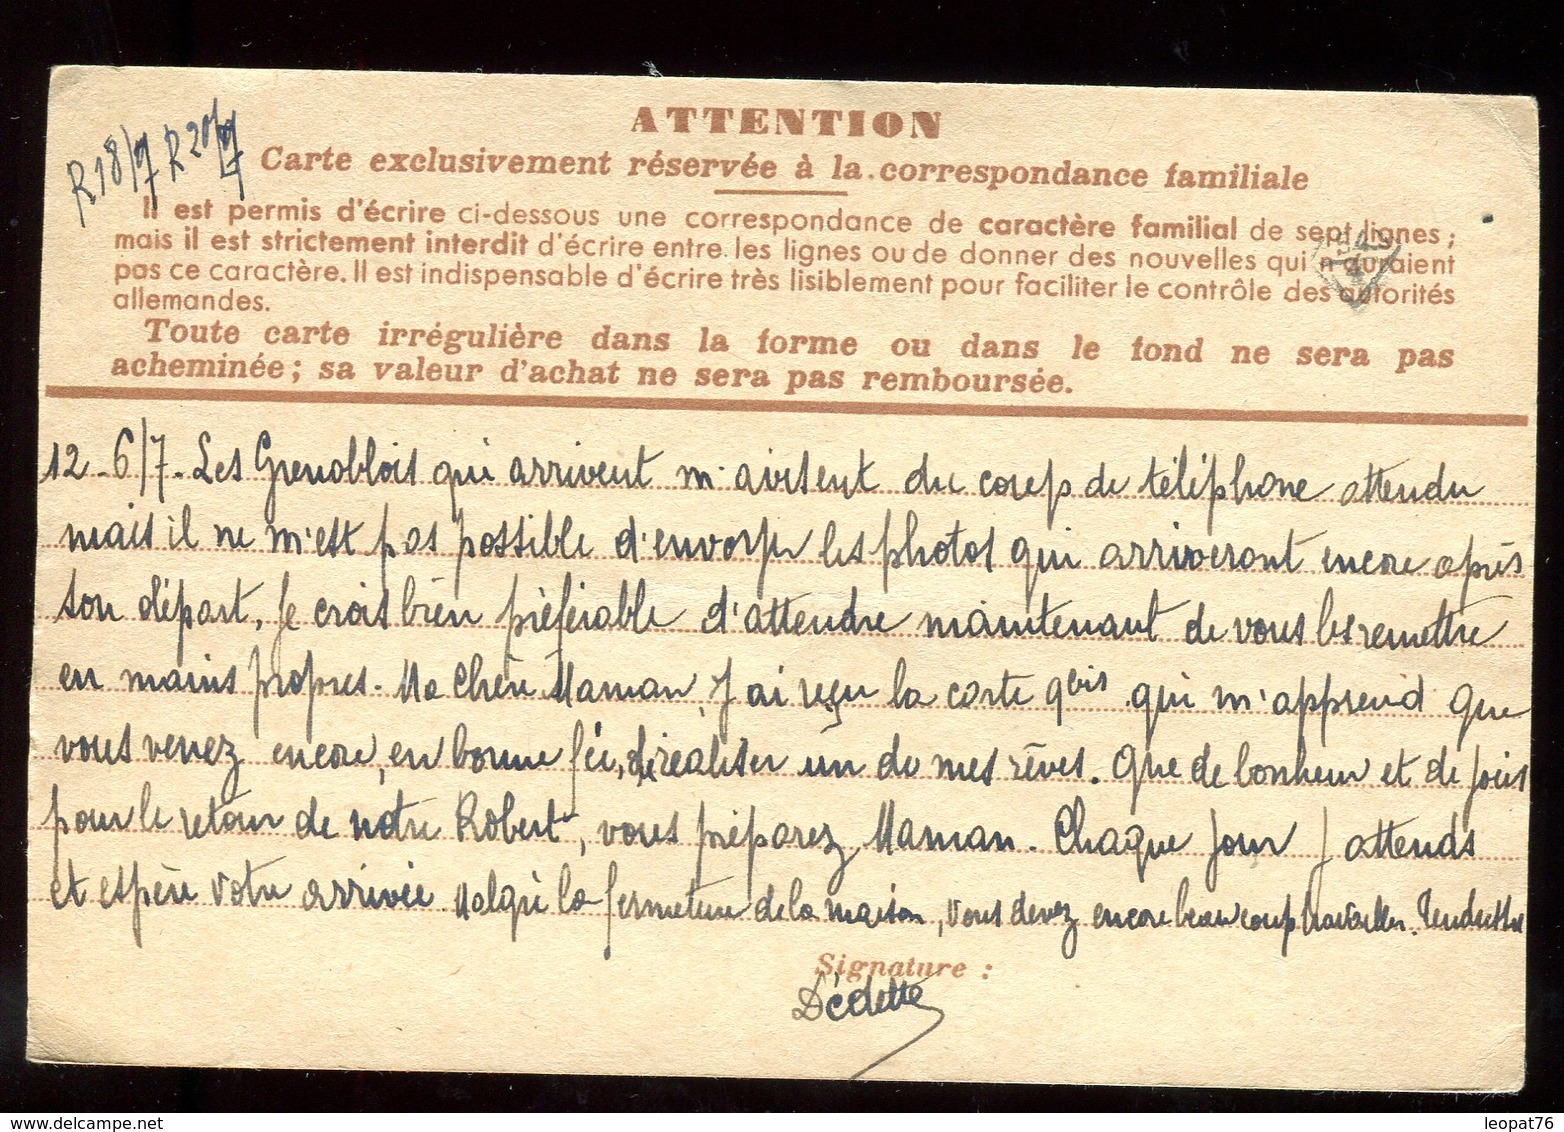 R 18/7 R 20/7
ATTENTION
Carte exclusivement réservée à la correspondance familiale
Il est permis d'écrire ci-dessous une correspondance de caractère familial de sept lignes ;
mais il est strictement interdit d'écrire entre les lignes ou de donner des nouvelles qui n'auraient
pas ce caractère. Il est indispensable d'écrire très lisiblement pour faciliter le contrôle des autorités
allemandes.
Toute carte irrégulière dans la forme ou dans le fond ne sera pas
acheminée ; sa valeur d'achat ne sera pas remboursée.
12 - 6/7 - Les Grenoblois qui arrivent m'avisent du coup de téléphone attendu
mais il ne m'est pas possible d'envoyer les photos qui arriveront encore après
son départ. Je crois bien préférable d'attendre maintenant de vous les remettre
en mains propres. Ma Chère Maman, J'ai reçu la carte 9bis qui m'apprend que
vous venez encore, en bonne fée, de réaliser un de mes rêves. Que de bonheur et de joies
pour le retour de notre Robert, vous préparez, Maman. Chaque jour j'attends
et espère votre arrivée. Malgré la fermeture de la maison, vous devez encore beaucoup travailler. Tendresse
Signature :
Dédette
leopat76